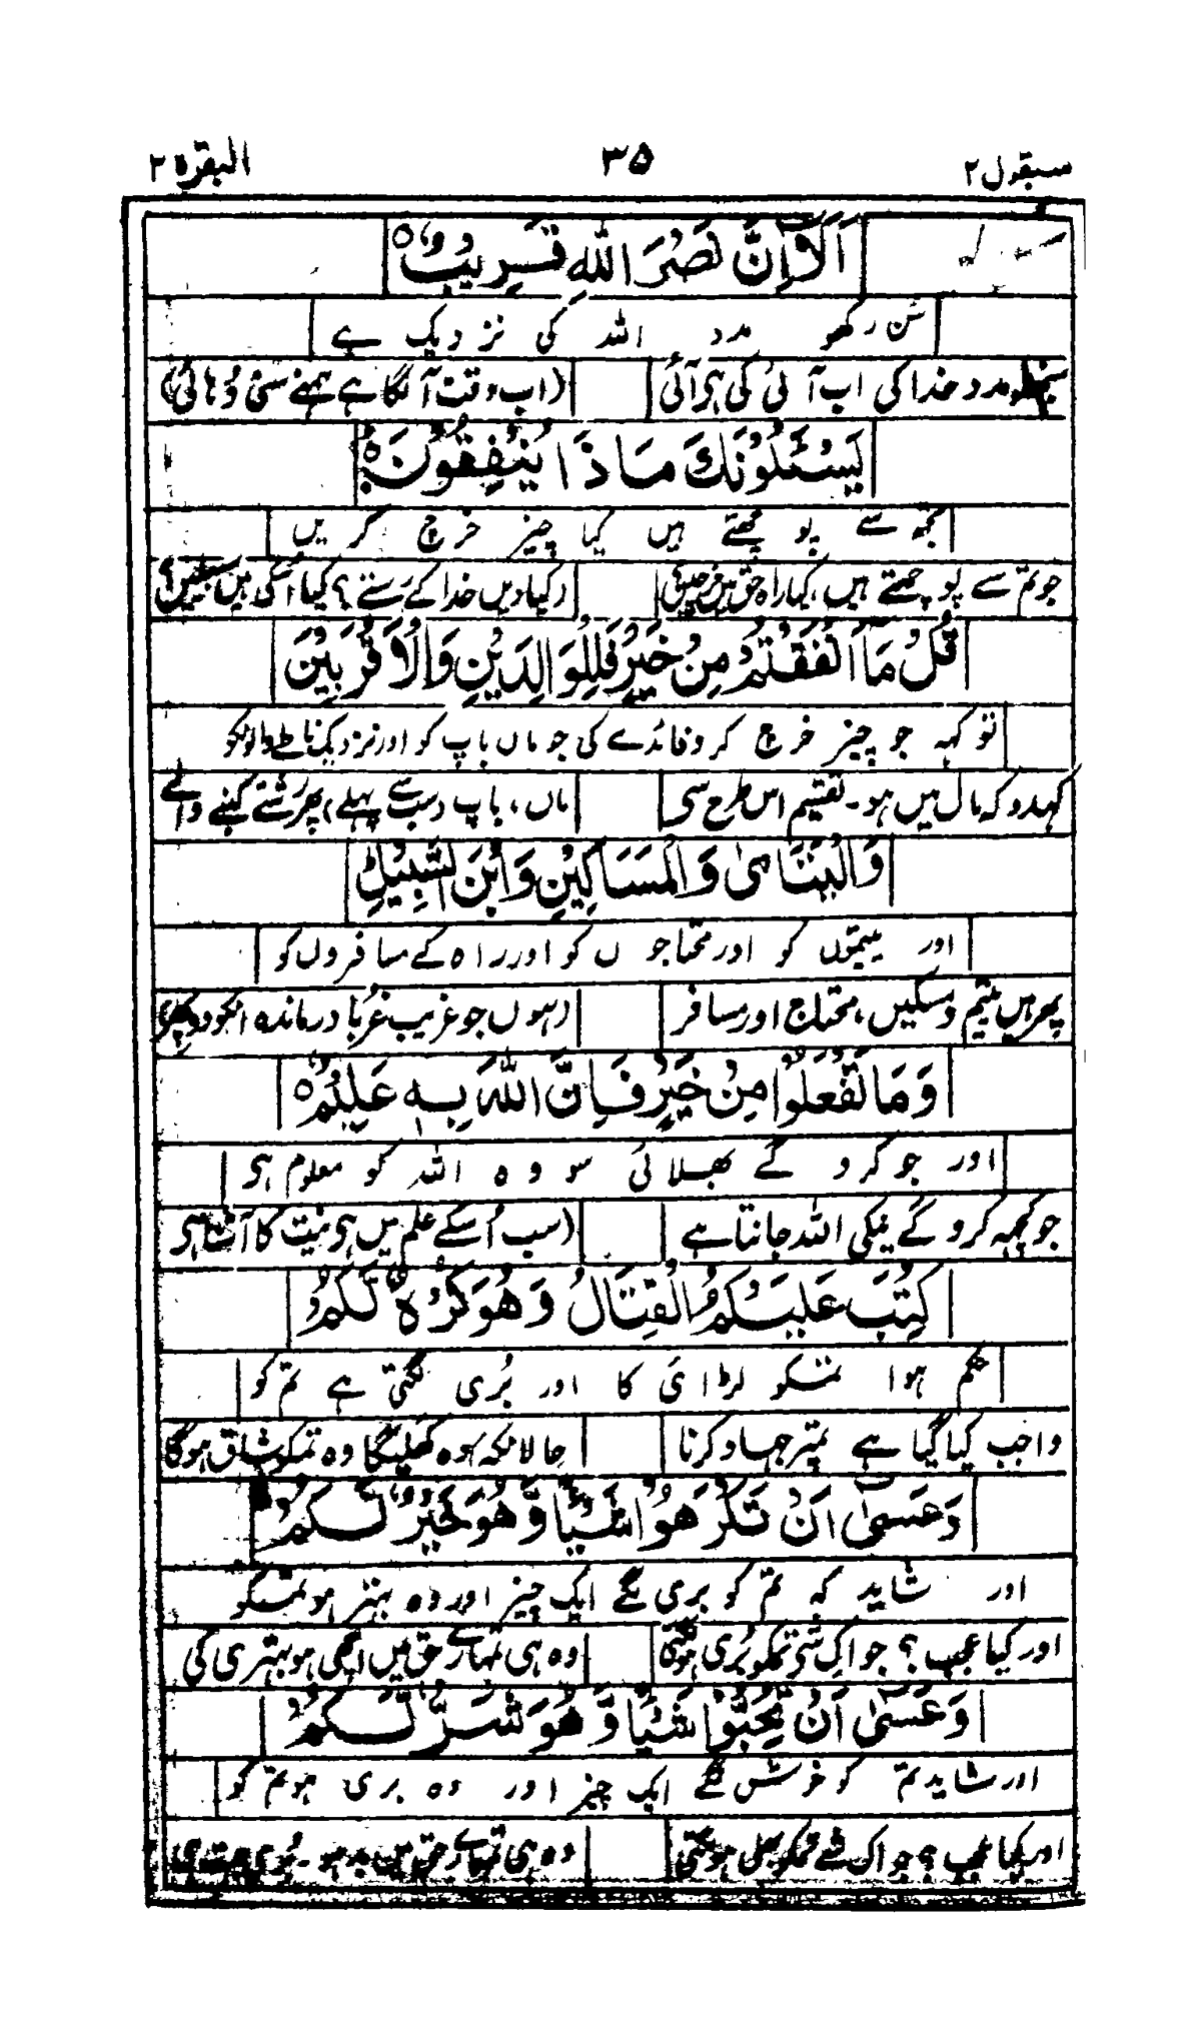 سیقول ۲ ۳۵ البقرہ ۲
اَلَاۤ اِنَّ نَصْرَ اللّٰهِ قَرِیْبٌ ۝
سُن رکھو مدد اللہ کی نزدیک ہے
مدد خدا کی اب آئی کی ہی آئی (اب وقت آ لگا ہے ہمنے سنی دُہائی)
یَسْـَٔلُوْنَكَ مَا ذَا یُنْفِقُوْنَ
تجھ سے پوچھتے ہیں کیا چیز خرچ کریں
جو تم سے پوچھتے ہیں، کیا راہ حق میں خرچیں؟ (کیا دیں خدا کے رستے؟ کیا اُسکی ہیں سبیلیں؟)
قُلْ مَاۤ اَنْفَقْتُمْ مِنْ خَیْرٍ فَلِلْوَالِدَیْنِ وَالْاَقْرَبِیْنَ
تو کہہ جو چیز خرچ کرو فائدے کی جو ماں باپ کو اور نزدیک ناطے والونکو
کہدو کہ مال میں ہو۔ تقسیم اس طرح سی ماں، باپ (سب سے پہلے) پھر رشتے کنبے والے
وَالْیَتَامٰی وَالْمَسَاكِیْنِ وَابْنِ السَّبِیْلِ
اور یتیموں کو اور محتاجوں کو اور راہ کے مسافروں کو
پھر ہیں یتیم و مسکیں، محتاج اور مسافر (ہوں جو غریب غربا درماندہ انکو دو پھر)
وَمَا تَفْعَلُوْا مِنْ خَیْرٍ فَاِنَّ اللّٰهَ بِهٖ عَلِیْمٌ ۝
اور جو کرو گے بھلائی سو وہ اللہ کو معلوم ہی
جو کچھہ کرو گے نیکی اللہ جانتا ہے (سب اُسکے علم میں ہی نیت کا آشنا ہی
كُتِبَ عَلَیْكُمُ الْقِتَالُ وَهُوَ كُرْهٌ لَّكُمْ
حکم ہوا تمکو لڑائی کا اور بُری لگتی ہے تم کو
واجب کیا گیا ہے تمپر جہاد کرنا حالانکہ وہ کھلیگا وہ تمکو شاق ہوگا
وَعَسٰۤی اَنْ تَكْرَهُوْا شَیْـًٔا وَّهُوَ خَیْرٌ لَّكُمْ
اور شاید کہ تم کو بری لگے ایک چیز اور وہ بہتر ہو تمکو
اور کیا عجب؟ جو اک شی تمکو بُری ہو لگتی وہ ہی تمہارے حق میں اچھی ہو بہتری کی
وَعَسٰۤی اَنْ تُحِبُّوْا شَیْـًٔا وَّهُوَ شَرٌّ لَّكُمْ
اور شاید تم کو خوش لگے ایک چیز اور وہ بری ہو تم کو
اور کیا عجب؟ جو اک شے تمکو بھلی ہو لگتی وہ ہی تمہارے حق میں بد ہو۔